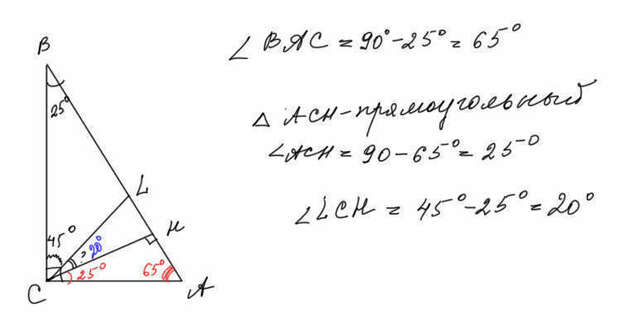 B
25°
L
45°
H
? 20°
25°
65°
C
A
∠ BAC = 90° - 25° = 65°
△ ACH - прямоугольный
∠ACH = 90 - 65° = 25°
∠LCH = 45° - 25° = 20°